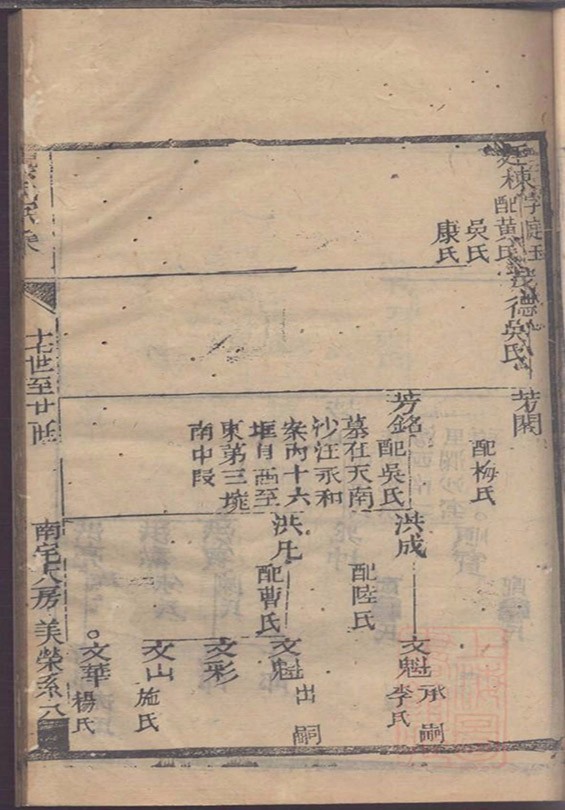 廷棟字廷玉
配黄氏
吳氏
康氏
德
吳氏
芳閣
配梅氏
芳銘
配吳氏
墓在天南
沙汪永和
案內十六
堆自西至
東第三壠
南中段
洪成
配陸氏
洪凡
配曹氏
文魁
承嗣
李氏
文魁
出嗣
文彩
文山
施氏
文華
楊氏
十七世至廿世
南宅大房
美榮系
六